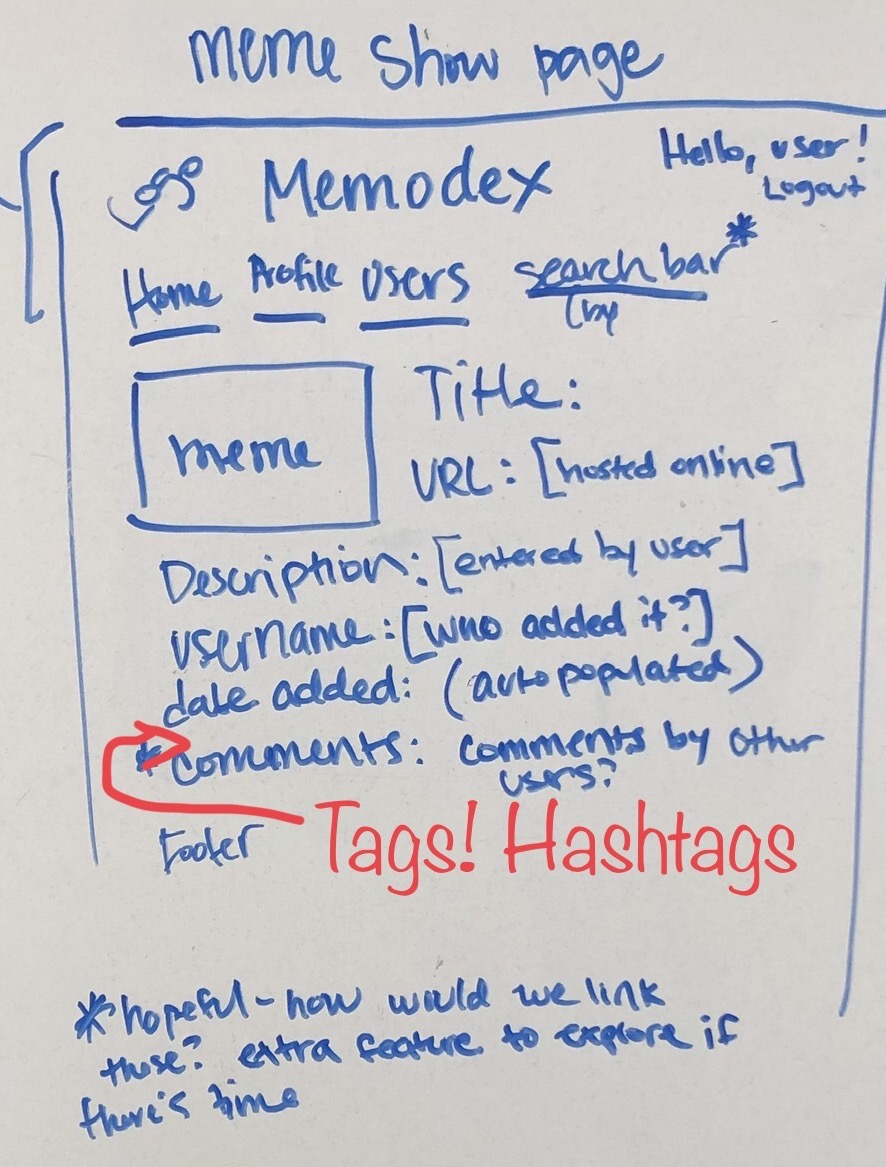 meme show page
Memodex
Hello, user!
Logout
Home Profile Users search bar*
(by
meme
Title:
URL: [hosted online]
Description: [entered by user]
username: [who added it?]
date added: (auto populated)
* comments: comments by other
users?
Tags! Hashtags
Footer
*hopeful - how would we link
those? extra feature to explore if
there's time